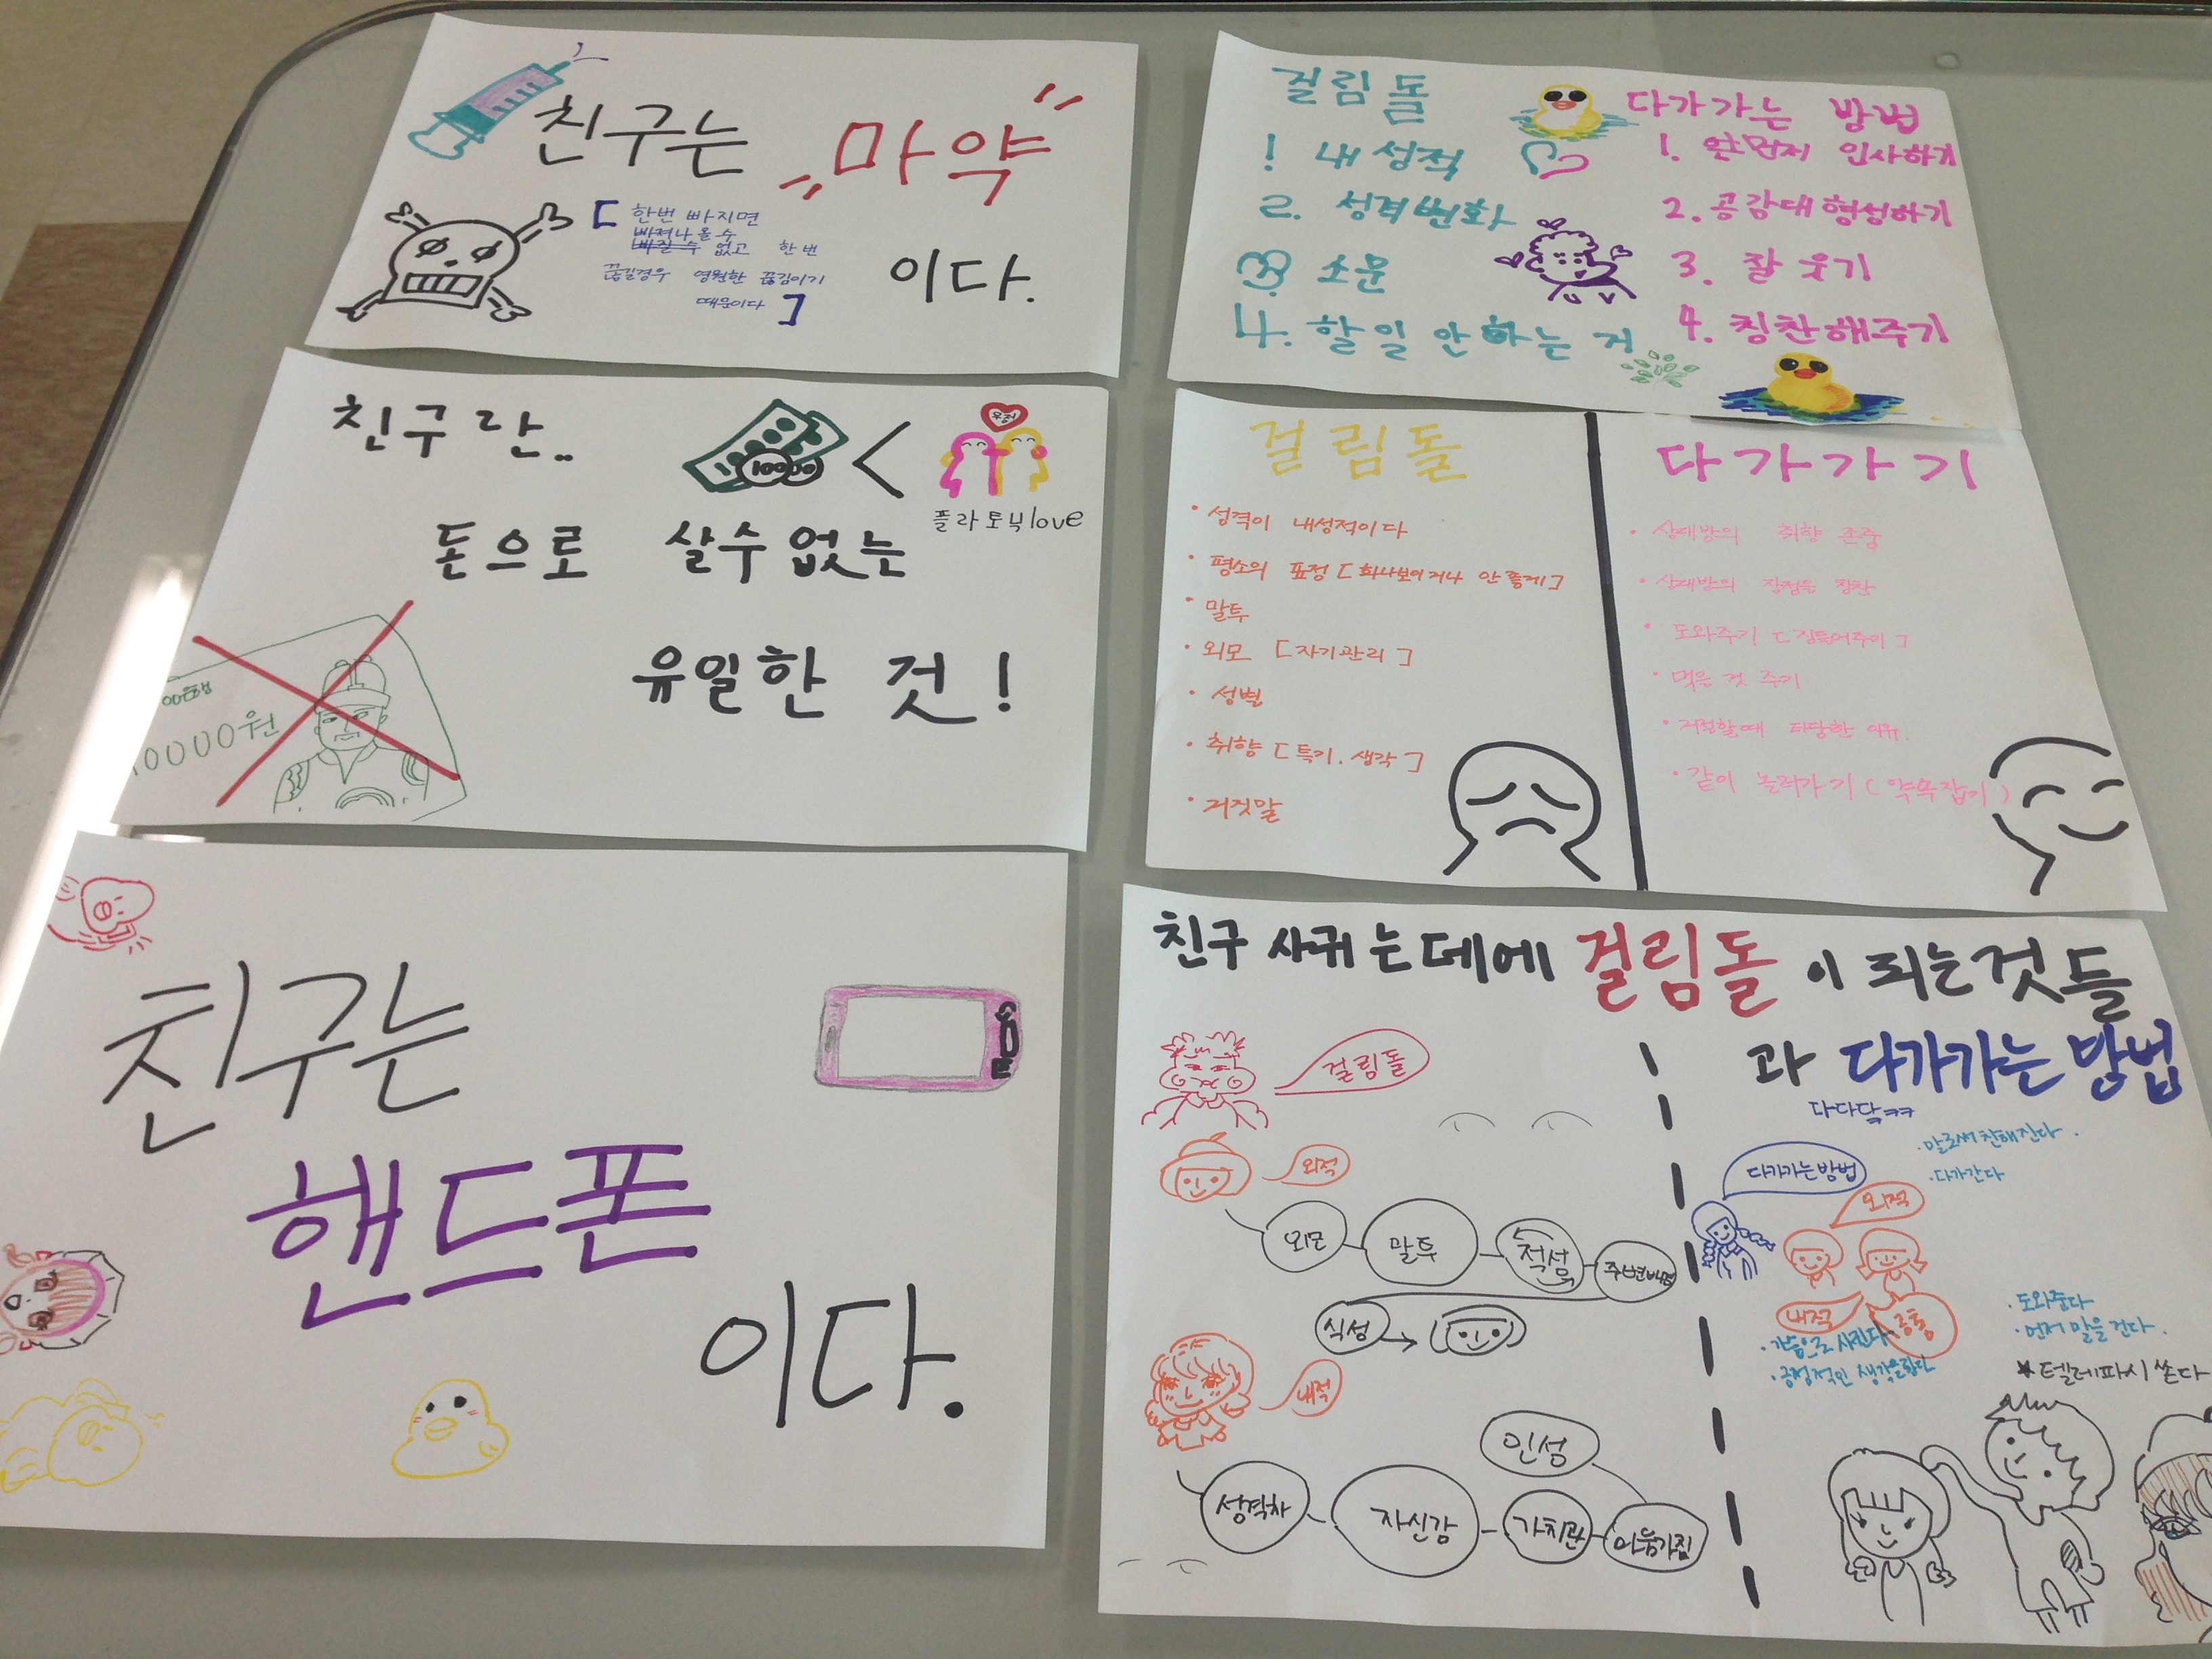 친구는 "마약"
[ 한번 빠지면
빠져나올수
빠질수 없고 한번
끊길경우 영원한 끊김이기
때문이다 ]
이다.
친구란..
10000
<
우정
플라토닉love
돈으로 살수없는
유일한 것!
0000원
친구는
핸드폰
이다.
걸림돌
1 내성적
2. 성격변화
3. 소문
4. 할일 안하는 거
다가가는 방법
1. 먼저 인사하기
2. 공감대형성하기
3. 잘 웃기
4. 칭찬해주기
걸림돌
• 성격이 내성적이다
• 평소의 표정 [화나보이거나 안좋게]
• 말투
• 외모 [자기관리]
• 성별
• 취향 [특기.생각]
• 거짓말
다가가기
• 상대방의 취향 존중
• 상대방의 장점을 칭찬
• 도와주기 [짐들어주기]
• 먹을 것 주기
• 거절할때 타당한 이유.
• 같이 놀러가기 (약속잡기)
친구 사귀는데에 걸림돌이 되는것들
과 다가가는방법
다다닥ㅋㅋ
걸림돌
외적
외모
말투
적성
주변배경
식성
내적
성격차
자신감
가치관
마음가짐
인성
다가가는방법
· 말로써 친해진다.
· 다가간다
외적
내적
공통
· 도와준다
· 먼저 말을 건다.
* 텔레파시 쏜다